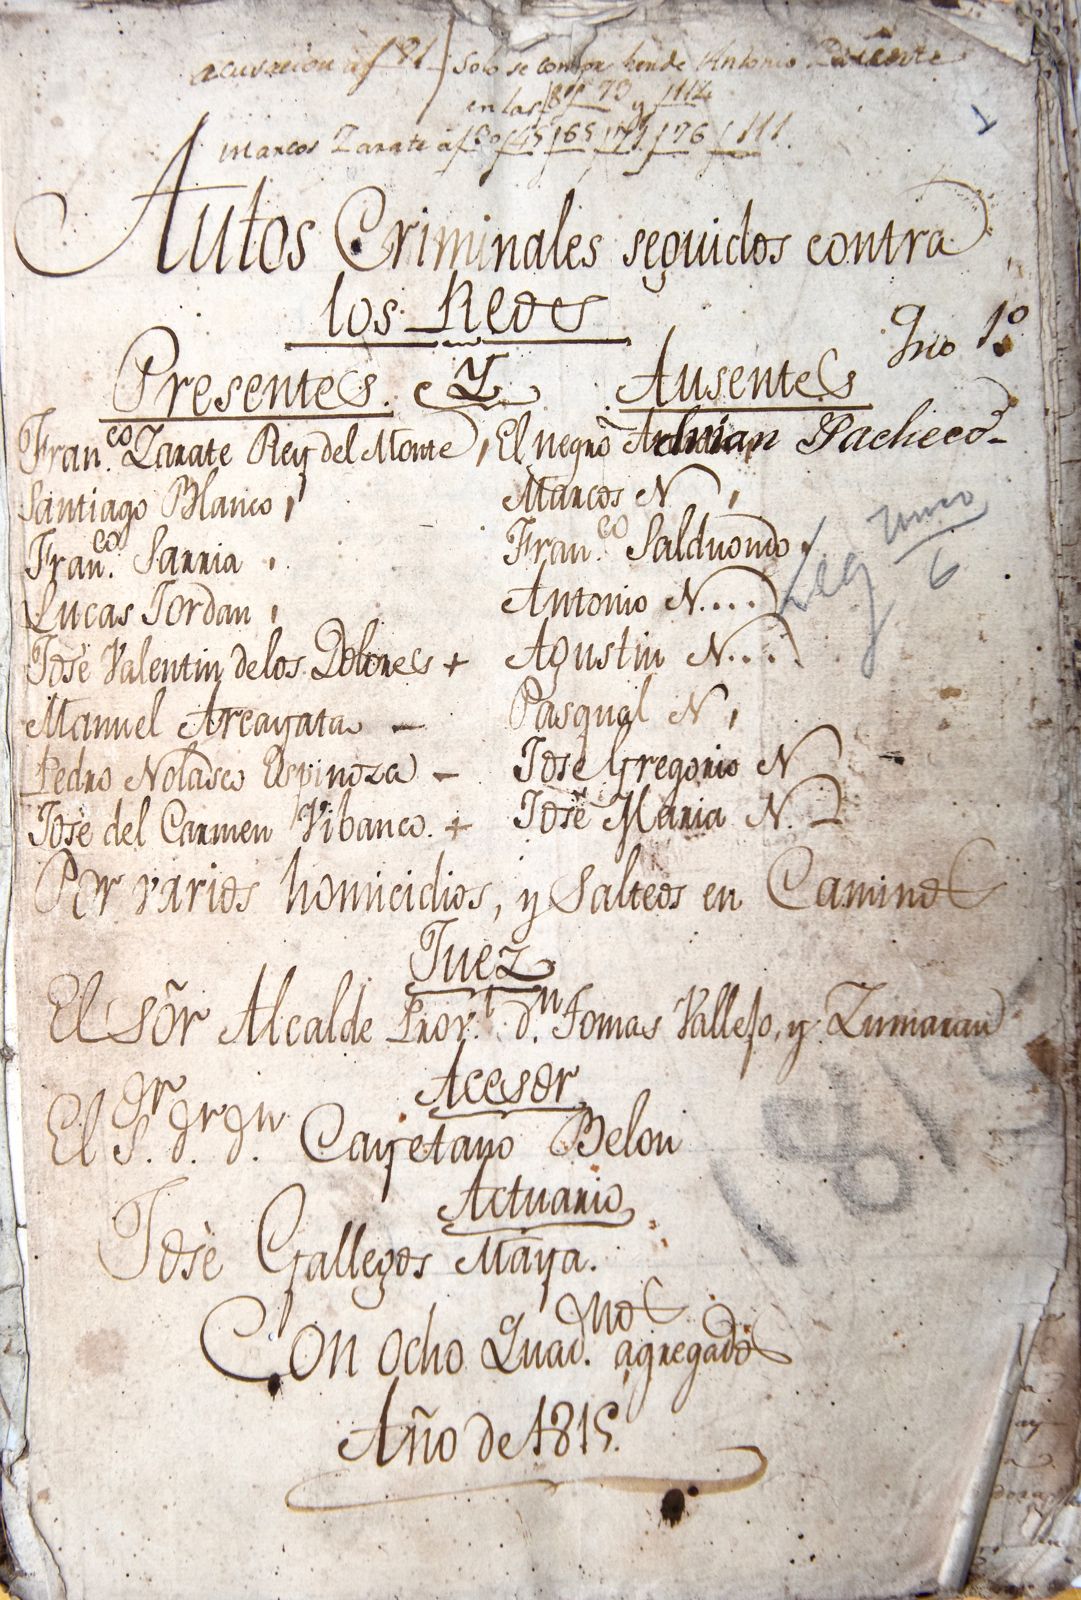 acusacion a f 81 Solo se comprehende Antonio Vicente
en las f 73 y f 112
1
Marcos Zarate a f 30 f 45 f 65 f 76 f 111.
Autos Criminales seguidos contra
los Reos
Presentes. Y Ausentes
Qno 1º
Fran.co Zarate Rey del Monte, El negro Adrian Pacheco
Santiago Blanco, Marcos N,
Fran.co Sarria, Fran.co Salduondo,
Lucas Jordan, Antonio N....
Jose Valentin de los Dolores + Agustin N....
Manuel Arcayata - Pasqual N,
Pedro Nolasco Espinoza - Jose Gregorio N
Jose del Carmen Vibanco. + Jose Maria N. -
Leg unico
6
Por varios homicidios, y Salteos en Caminos
Juez
El Sõr Alcalde Prov.l d.n Tomas Vallejo, y Zumaran
Acesor
El S.or d.r d.n Cayetano Belon
1815
Actuario
Josè Gallegos Maya.
Con ocho Quad.nos agregados
Año de 1815.